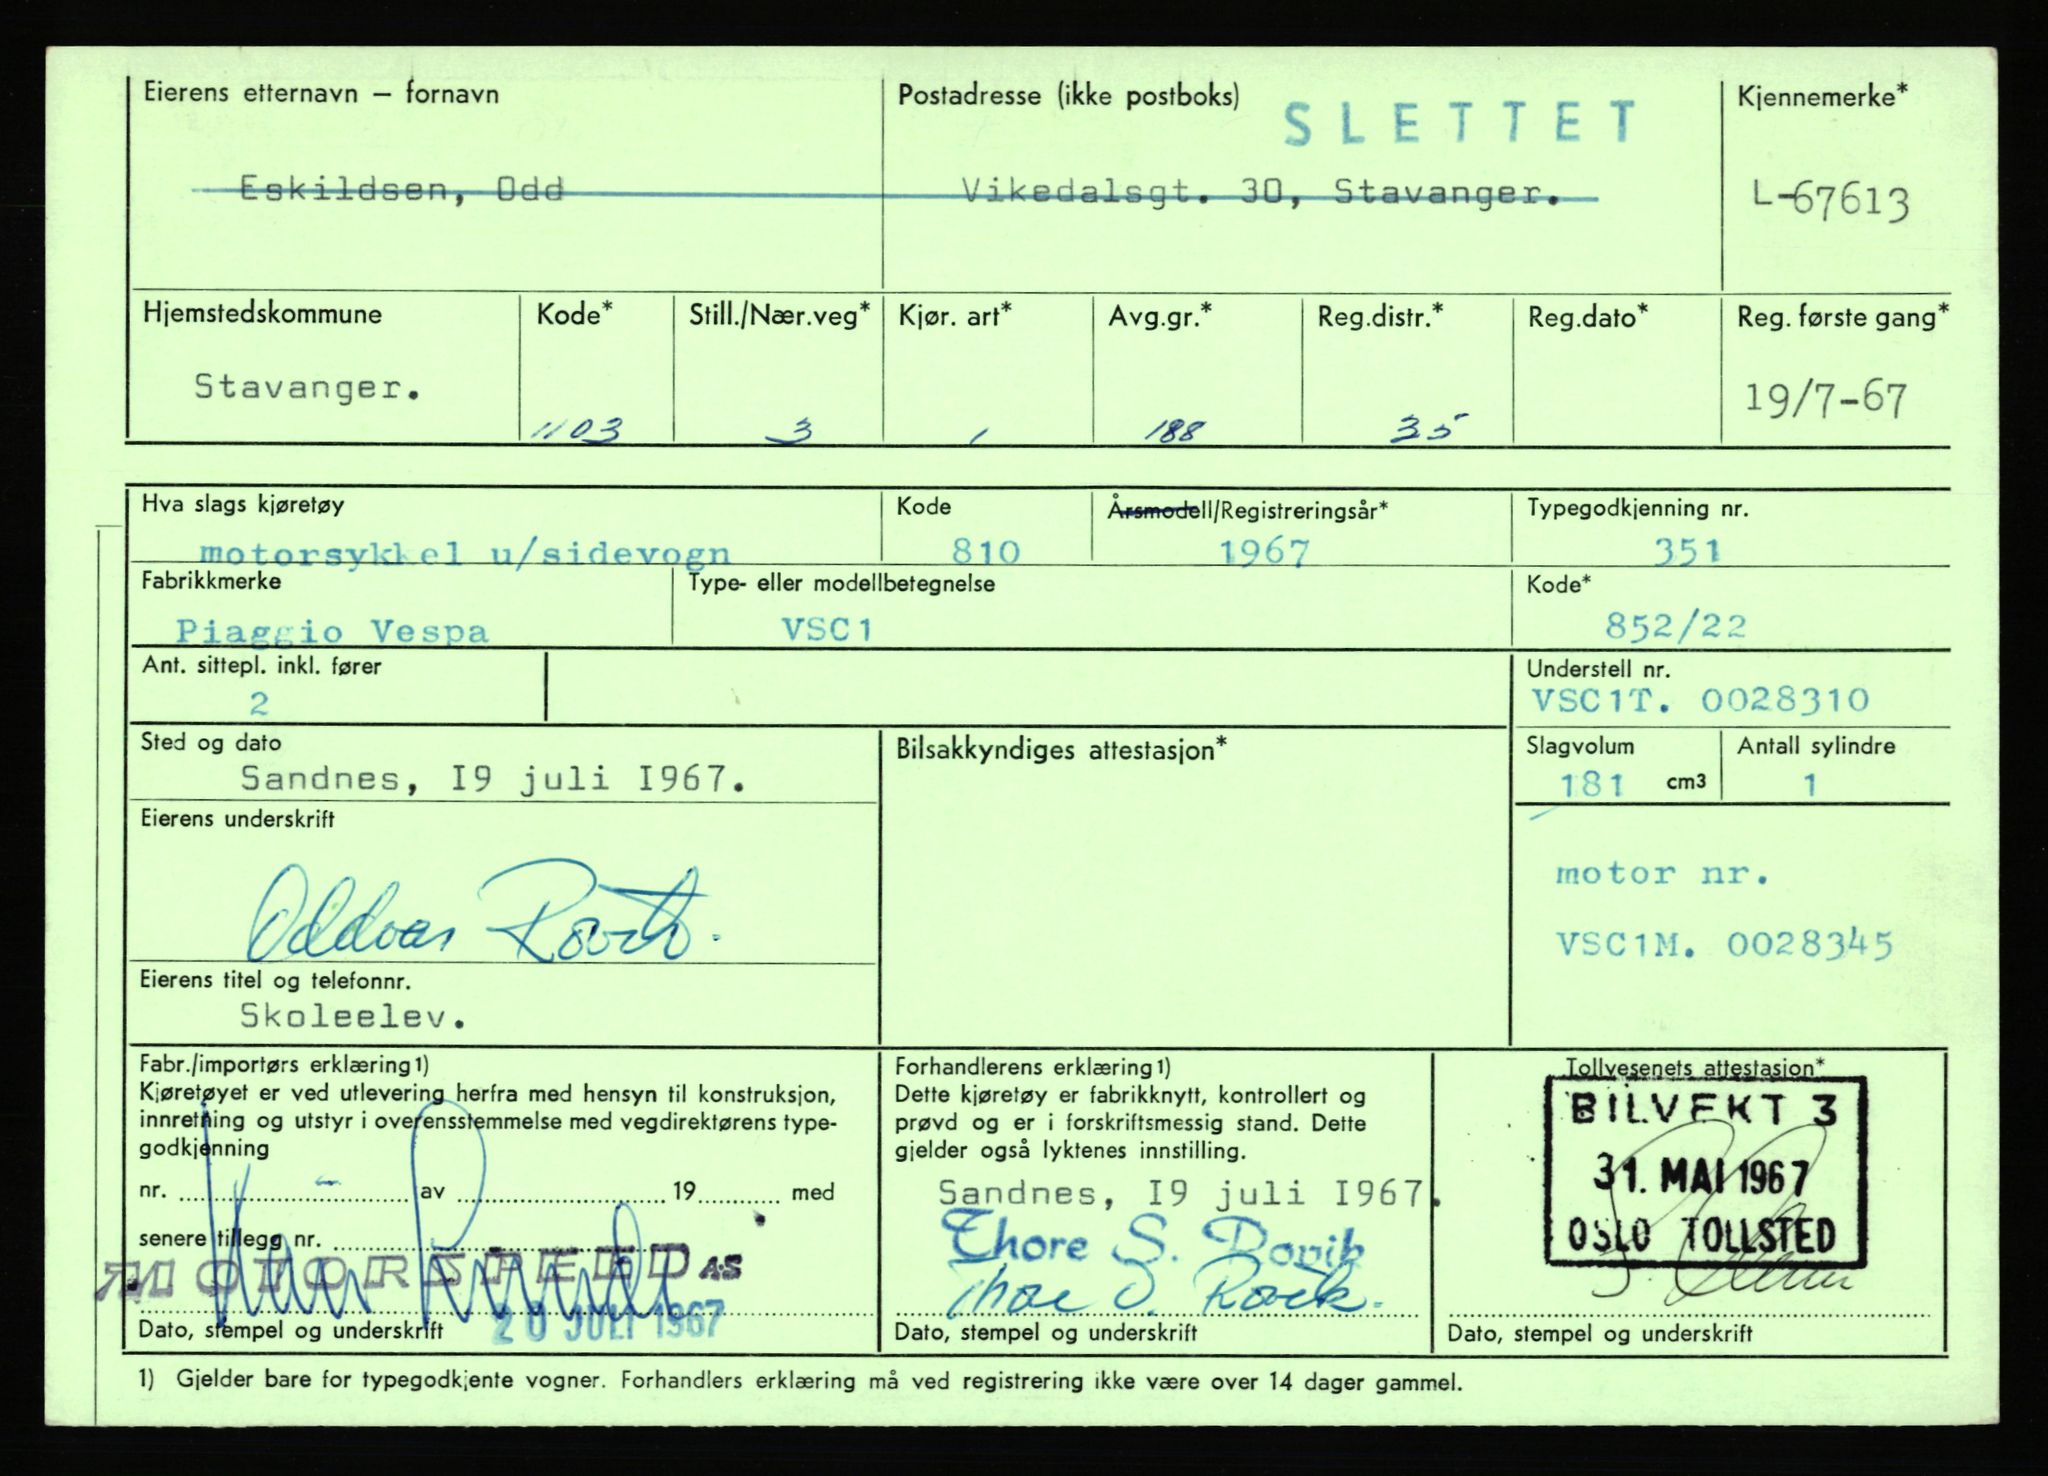 Eierens etternavn – fornavn
Postadresse (ikke postboks)
SLETTET
Kjennemerke*
Eskildsen, Odd
Vikedalsgt. 30, Stavanger.
L-67613
Hjemstedskommune
Kode*
Still./Nær.veg*
Kjør. art*
Avg.gr.*
Reg.distr.*
Reg.dato*
Reg. første gang*
Stavanger.
1103
3
1
188
35
19/7-67
Hva slags kjøretøy
Kode
Årsmodell/Registreringsår*
Typegodkjenning nr.
motorsykkel u/sidevogn
810
1967
351
Fabrikkmerke
Type- eller modellbetegnelse
Kode*
Piaggio Vespa
VSC1
852/22
Ant. sittepl. inkl. fører
Understell nr.
2
VSC1T. 0028310
Sted og dato
Bilsakkyndiges attestasjon*
Slagvolum
Antall sylindre
Sandnes, I9 juli I967.
181 cm3
1
Eierens underskrift
motor nr.
Oddvar
VSC1M. 0028345
Eierens titel og telefonnr.
Skoleelev.
Fabr./importørs erklæring1)
Kjøretøyet er ved utlevering herfra med hensyn til konstruksjon,
innretning og utstyr i overensstemmelse med vegdirektørens type-
godkjenning
nr. - av 19 med
senere tillegg nr.
MOTORSPEED A-S
20 JULI 1967
Dato, stempel og underskrift
Forhandlerens erklæring1)
Dette kjøretøy er fabrikknytt, kontrollert og
prøvd og er i forskriftsmessig stand. Dette
gjelder også lyktenes innstilling.
Sandnes, I9 juli I967.
Thore S. Rovik
Thore S. Rovik.
Dato, stempel og underskrift
Tollvesenets attestasjon*
BILVEKT 3
31. MAI 1967
OSLO TOLLSTED
Dato, stempel og underskrift
1) Gjelder bare for typegodkjente vogner. Forhandlers erklæring må ved registrering ikke være over 14 dager gammel.